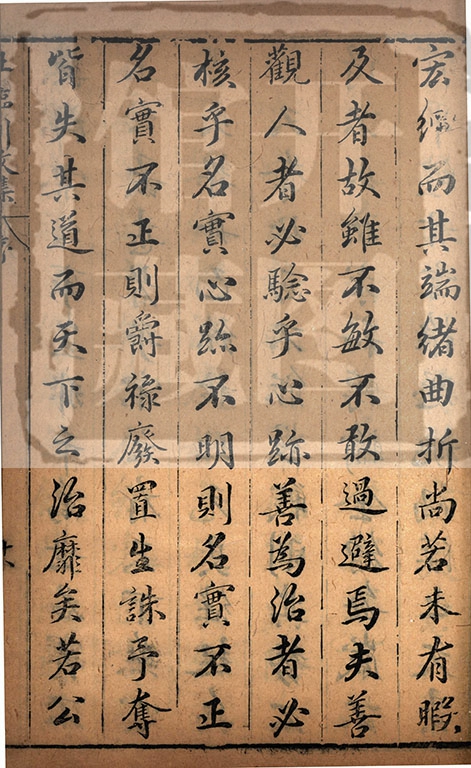 宏經而其端緒曲折尚若未有暇
及者故雖不敏不敢過避焉夫善
觀人者必驗乎心跡善為治者必
核乎名實心跡不明則名實不正
名實不正則爵祿廢置生誅予奪
皆失其道而天下之治靡矣若公